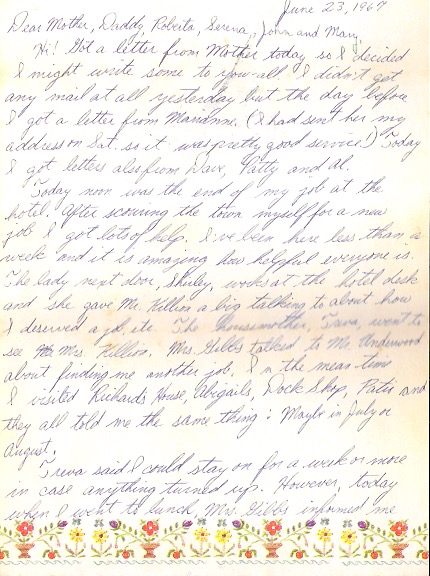 June 23, 1967
Dear Mother, Daddy, Roberta, Serena, John and Mary,
Hi! Got a letter from Mother today so I decided
I might write some to you-all. I didn't get
any mail at all yesterday but the day before
I got a letter from Marianne. (I had sent her my
address on Sat. so it was pretty good service!) Today
I got letters also from Dave, Patty and Al.
Today noon was the end of my job at the
hotel. After scouring the town myself for a new
job I got lots of help. I've been here less than a
week and it is amazing how helpful everyone is.
The lady next door, Shirley, works at the hotel desk
and she gave Mr. Killion a big talking to about how
I deserved a job, etc. The housemother, Treva, went to
see Mrs. Killion. Mrs. Gibbs talked to Mr. Underwood
about finding me another job. In the mean-time
I visited Richards House, Abigails, Dock Shop, Patis and
they all told me the same thing: Maybe in July or
August.
Treva said I could stay on for a week or more
in case anything turned up. However, today
when I went to lunch, Mrs. Gibbs informed me